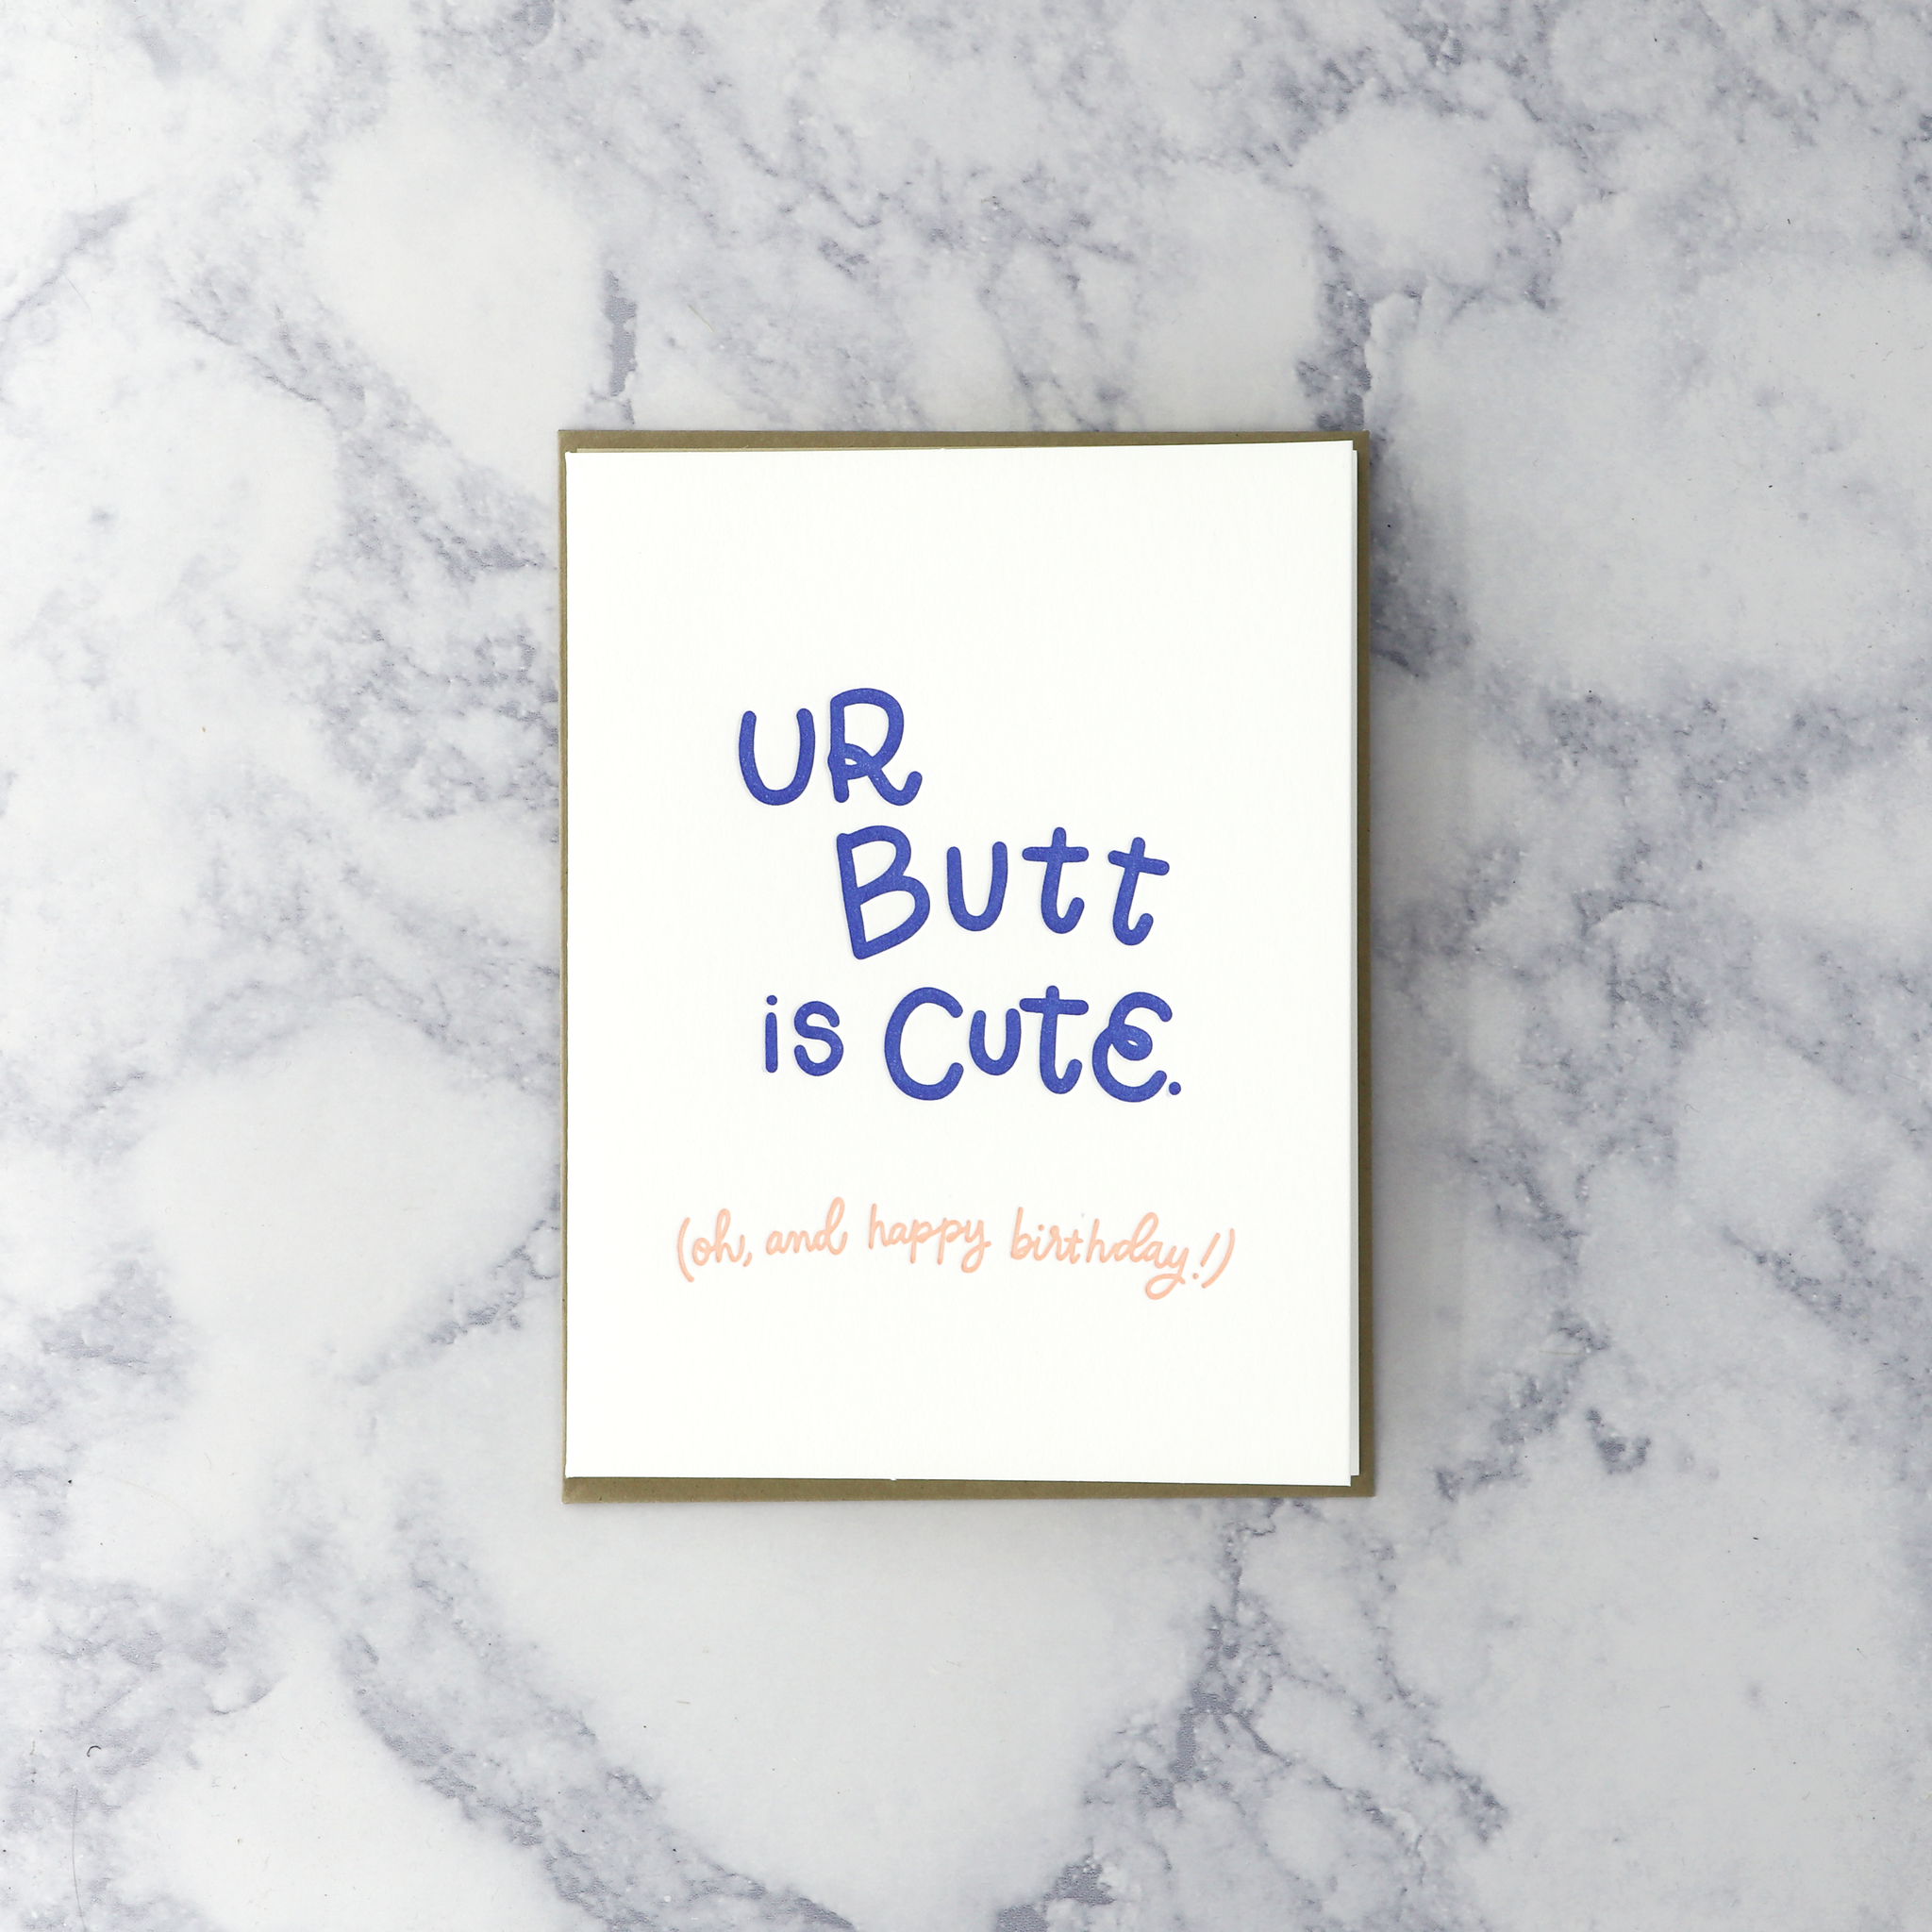 UR
Butt
is Cute.
(oh, and happy birthday!)